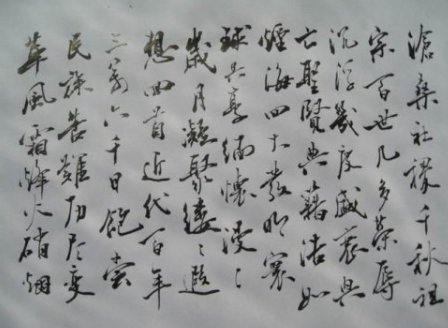 滄桑社稷千秋祖
宗百世几多榮辱
沉浮幾度盛衰興
亡聖賢典籍浩如
煙海四大發明寰
球共享緬懷漫〻
歲月凝聚縷〻遐
想回首近代百年
三萬六千日飽嘗
民族苦難歷盡變
革風霜烽火硝煙